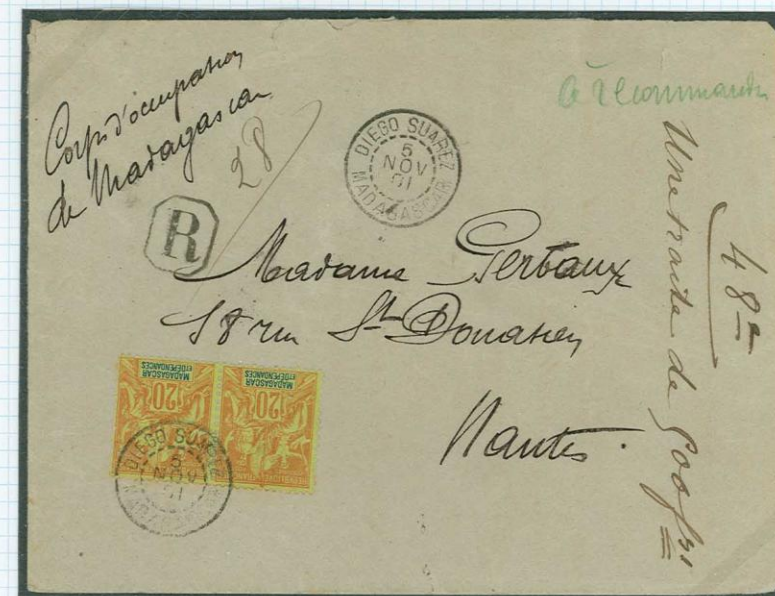 Corps d'occupation
de Madagascar
28
R
DIEGO SUAREZ
5
NOV
01
MADAGASCAR
à recommander
Madame Gerbaux
18 rue St Donatien
Nantes.
48e
Une traite de 900f
MADAGASCAR
ET DÉPENDANCES
20
MADAGASCAR
ET DÉPENDANCES
20
DIEGO SUAREZ
5
NOV
01
MADAGASCAR